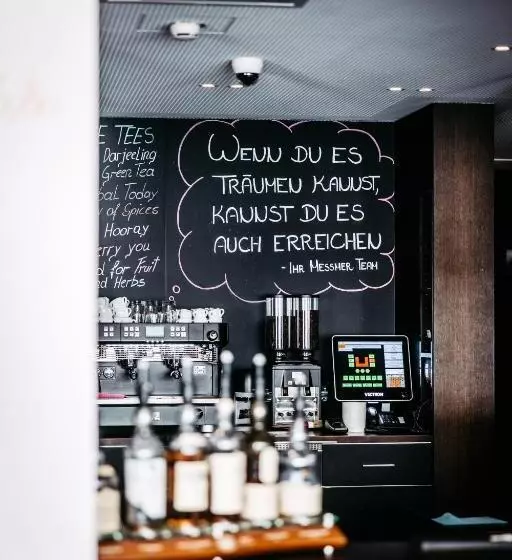 E TEES
Darjeeling
Green Tea
bal Today
y of Spices
Hooray
erry you
d for Fruit
d Herbs
WENN DU ES
TRÄUMEN KANNST,
KANNST DU ES
AUCH ERREICHEN
- IHR MESSMER TEAM
VECTRON